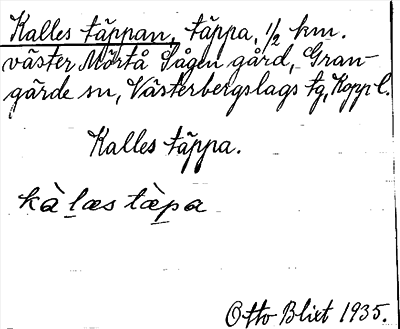 Kalles täppan, täppa, 1/2 km.
väster Mörtå Sågen gård, Gran-
gärde sn, Västerbergslags tg, Kopp l.
Kalles täppa.
kàlæs tæ̀pa
Otto Blixt 1935.